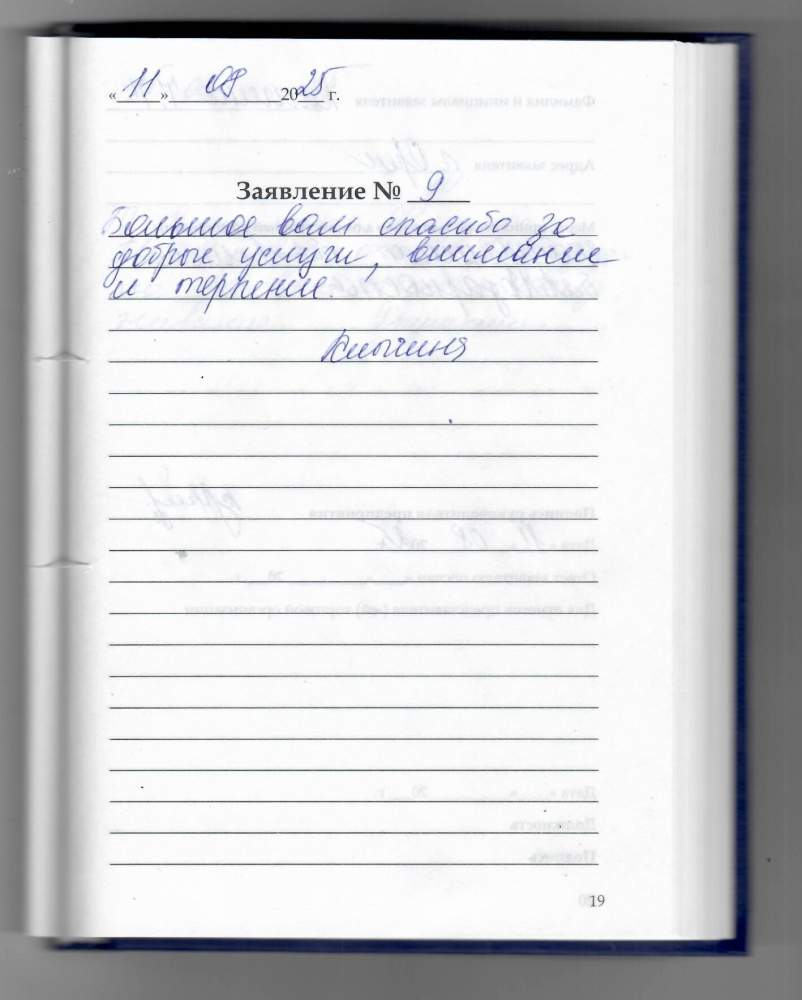 «11» 09 2025 г.
Заявление № 9
Большое вам спасибо за
добрые услуги, внимание
и терпение.
19